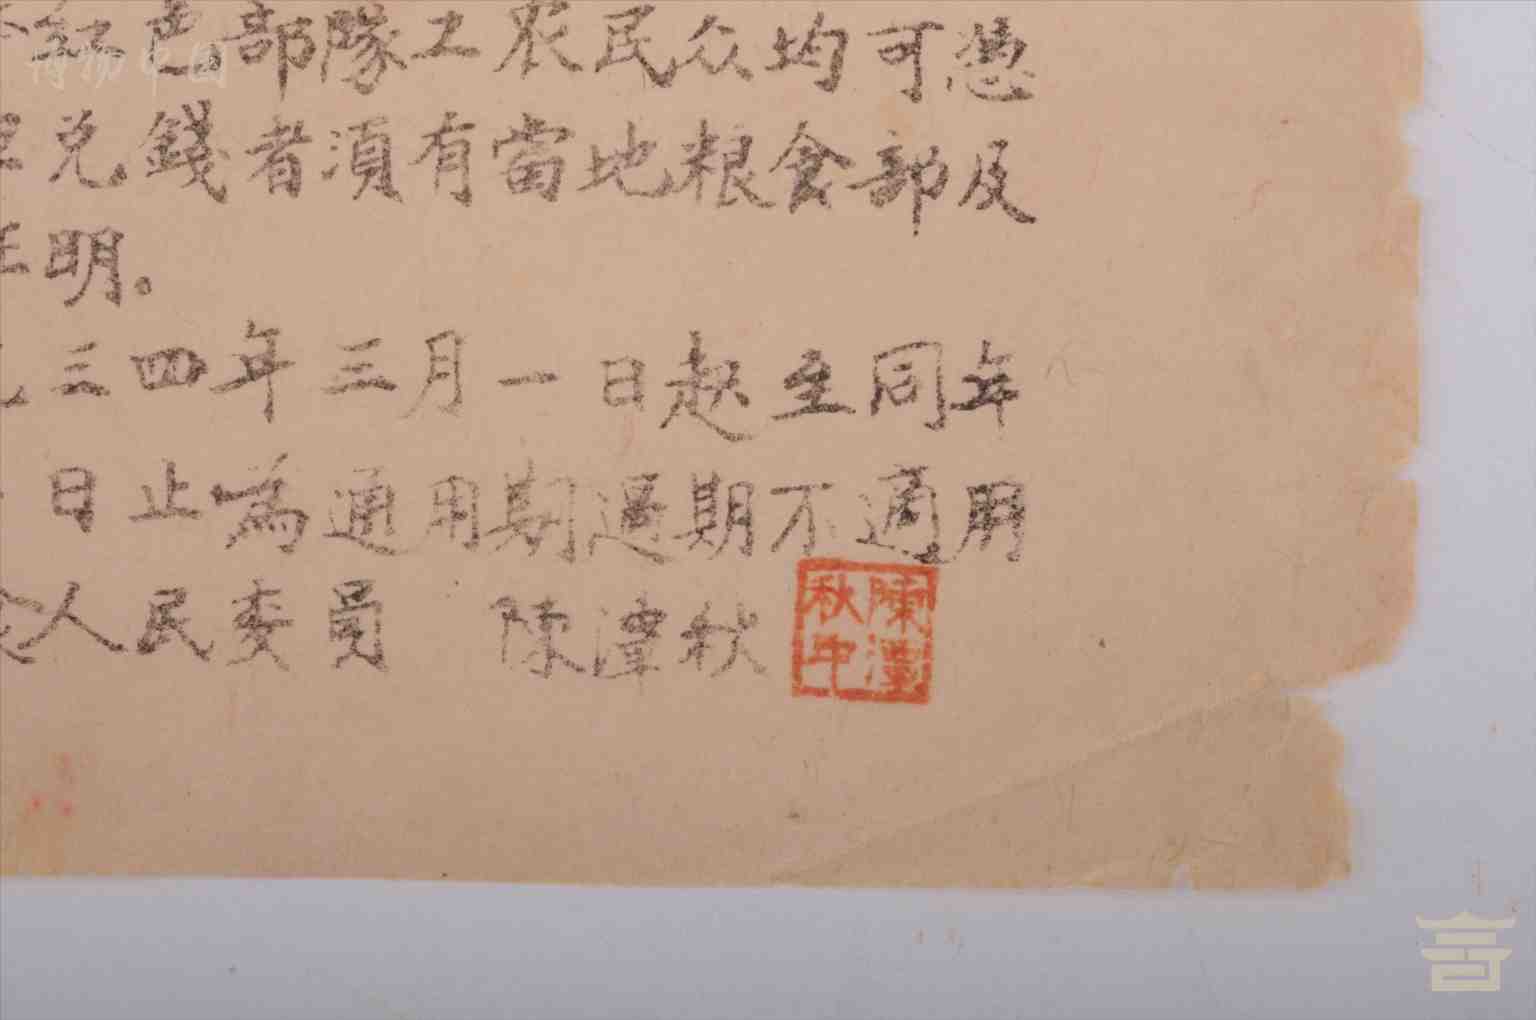 博物中国
红色部隊工农民众均可憑
兑錢者須有當地粮食部及
明。
三四年三月一日起至同年
日止為通用期過期不適用
人民委員 陳潭秋
陳潭秋印